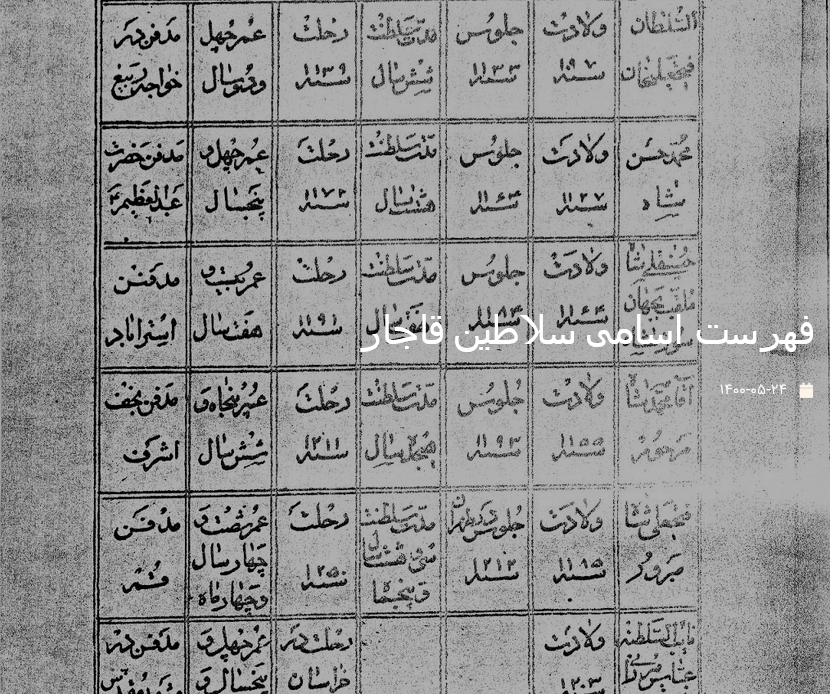 السلطان ولادت جلوس مدت سلطنت رحلت عمر چهل مدفن در
فتحعلیخان سنه ۱۰۹۷ سنه ۱۱۳۳ شش سال سنه ۱۱۳۹ و دو سال خواجه ربیع
محمد حسن ولادت جلوس مدت سلطنت رحلت عمر چهل و مدفن حضرت
شاه سنه ۱۱۲۷ هشت سال سنه ۱۱۷۲ پنجسال عبدالعظیم
حسینقلی شاه ولادت جلوس مدت سلطنت رحلت عمر بیست و مدفن
ملقب بجهان هفت سال سنه ۱۱۹۱ هفت سال استراباد
سوز شاه
فهرست اسامی سلاطین قاجار
۱۴۰۰-۰۵-۲۴
آقا محمد شاه ولادت جلوس مدت سلطنت رحلت عمر پنجاه و مدفن نجف
مرحوم سنه ۱۱۵۵ سنه ۱۱۹۳ هیجده سال سنه ۱۲۱۱ شش سال اشرف
فتحعلی شاه ولادت جلوس در طهران مدت سلطنت رحلت عمر شصت و مدفن
مبرور سنه ۱۱۸۵ سنه ۱۲۱۲ سی و هشت سال سنه ۱۲۵۰ چهار سال قم
و پنجماه و چهار ماه
نایب السلطنه ولادت رحلت در عمر چهل و مدفن در
عباس میرزا ۱۲۰۳ خراسان پنجسال و